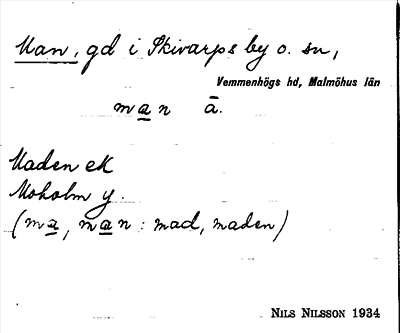 Man, gd i Skivarps by o. sn,
Vemmenhögs hd, Malmöhus län
man ā.
Maden ek
Moholm y.
(ma, man : mad, maden)
NILS NILSSON 1934